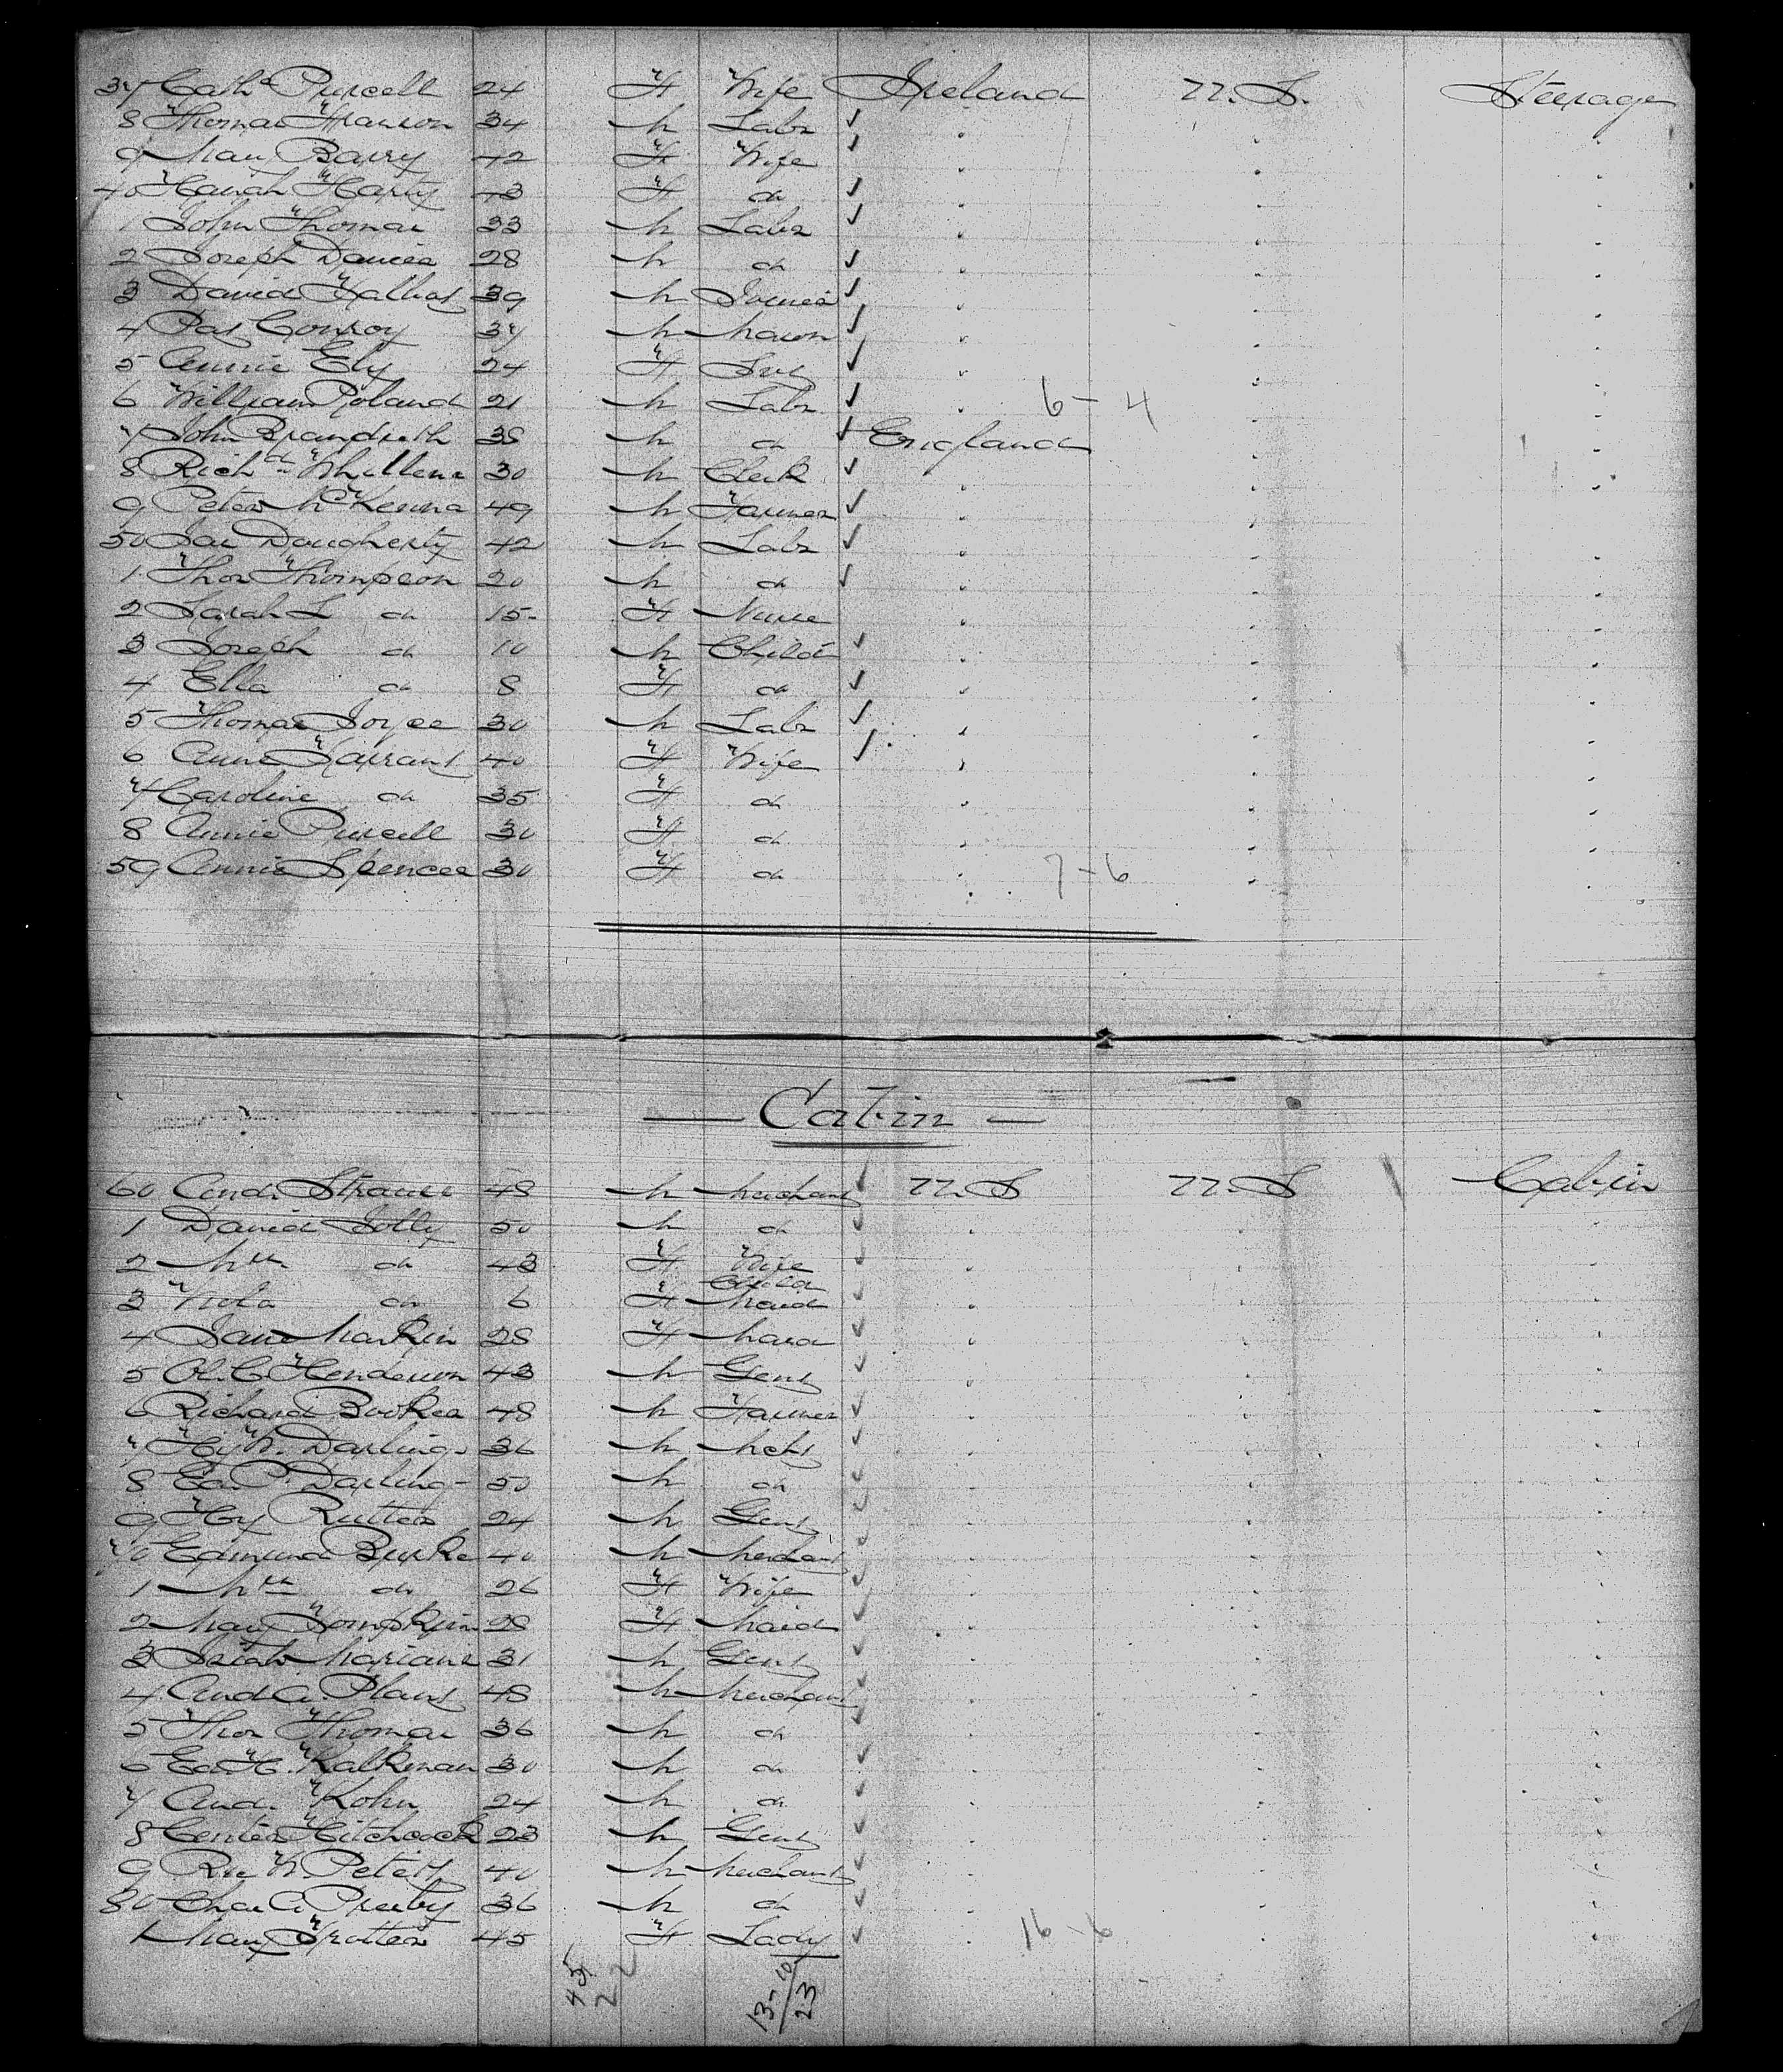 37 Cath Purcell 24 F Wife Ireland U.S. Steerage
8 Thomas Franson 34 M Labr
9 Mary Barry 42 F Wife
40 Hanah Harty 43 F do
1 John Thomas 33 M Labr
2 Joseph Davies 28 M do
3 David 39 M Joiner
4 Pat Conroy 37 M Mason
5 Annie Ely 24 F Svt
6 William Poland 21 M Labr 6-4
7 John Brandreth 38 M do England
8 Richd 30 M Clerk
9 Peter McKenna 49 M Farmer
50 Jas Dougherty 42 M Labr
1 Thos Thompson 20 M do
2 Sarah L do 15 F Nurse
3 Joseph do 10 M Child
4 Ella do 8 F do
5 Thomas Joyce 30 M Labr
6 Anne Tarrant 40 F Wife
7 Caroline do 35 F do
8 Annie Purcell 30 F do
59 Annie Spencer 30 F do 7-6
— Cabin —
60 And. Strauss 48 M Merchant U.S U.S Cabin
1 David Jolly 50 M do
2 Mrs do 43 F Wife
Child
3 Viola do 6 F Maid
4 Jane Markin 28 F Maid
5 C. Henderson 43 M Gent
6 Richard Booker 48 M Farmer
7 Hy W. Darling 36 M Mcht
8 Ed P. Darling 50 M do
9 Hy Rutter 24 M Gent
70 Edmund Burke 40 M Merchant
1 Mrs do 26 F Wife
2 Mary Tompkins 28 F Maid
3 31 M Gent
4 And A. Plant 48 M Merchant
5 Thos Thomas 36 M do
6 Ed H. Kalkman 30 M do
7 And. Kohn 24 M do
8 Center Hitchcock 23 M Gent
9 W. 40 M Merchant
80 Chas A. 36 M do
1 Mary Trotter 45 F Lady 16-6
45
22
13-10
23